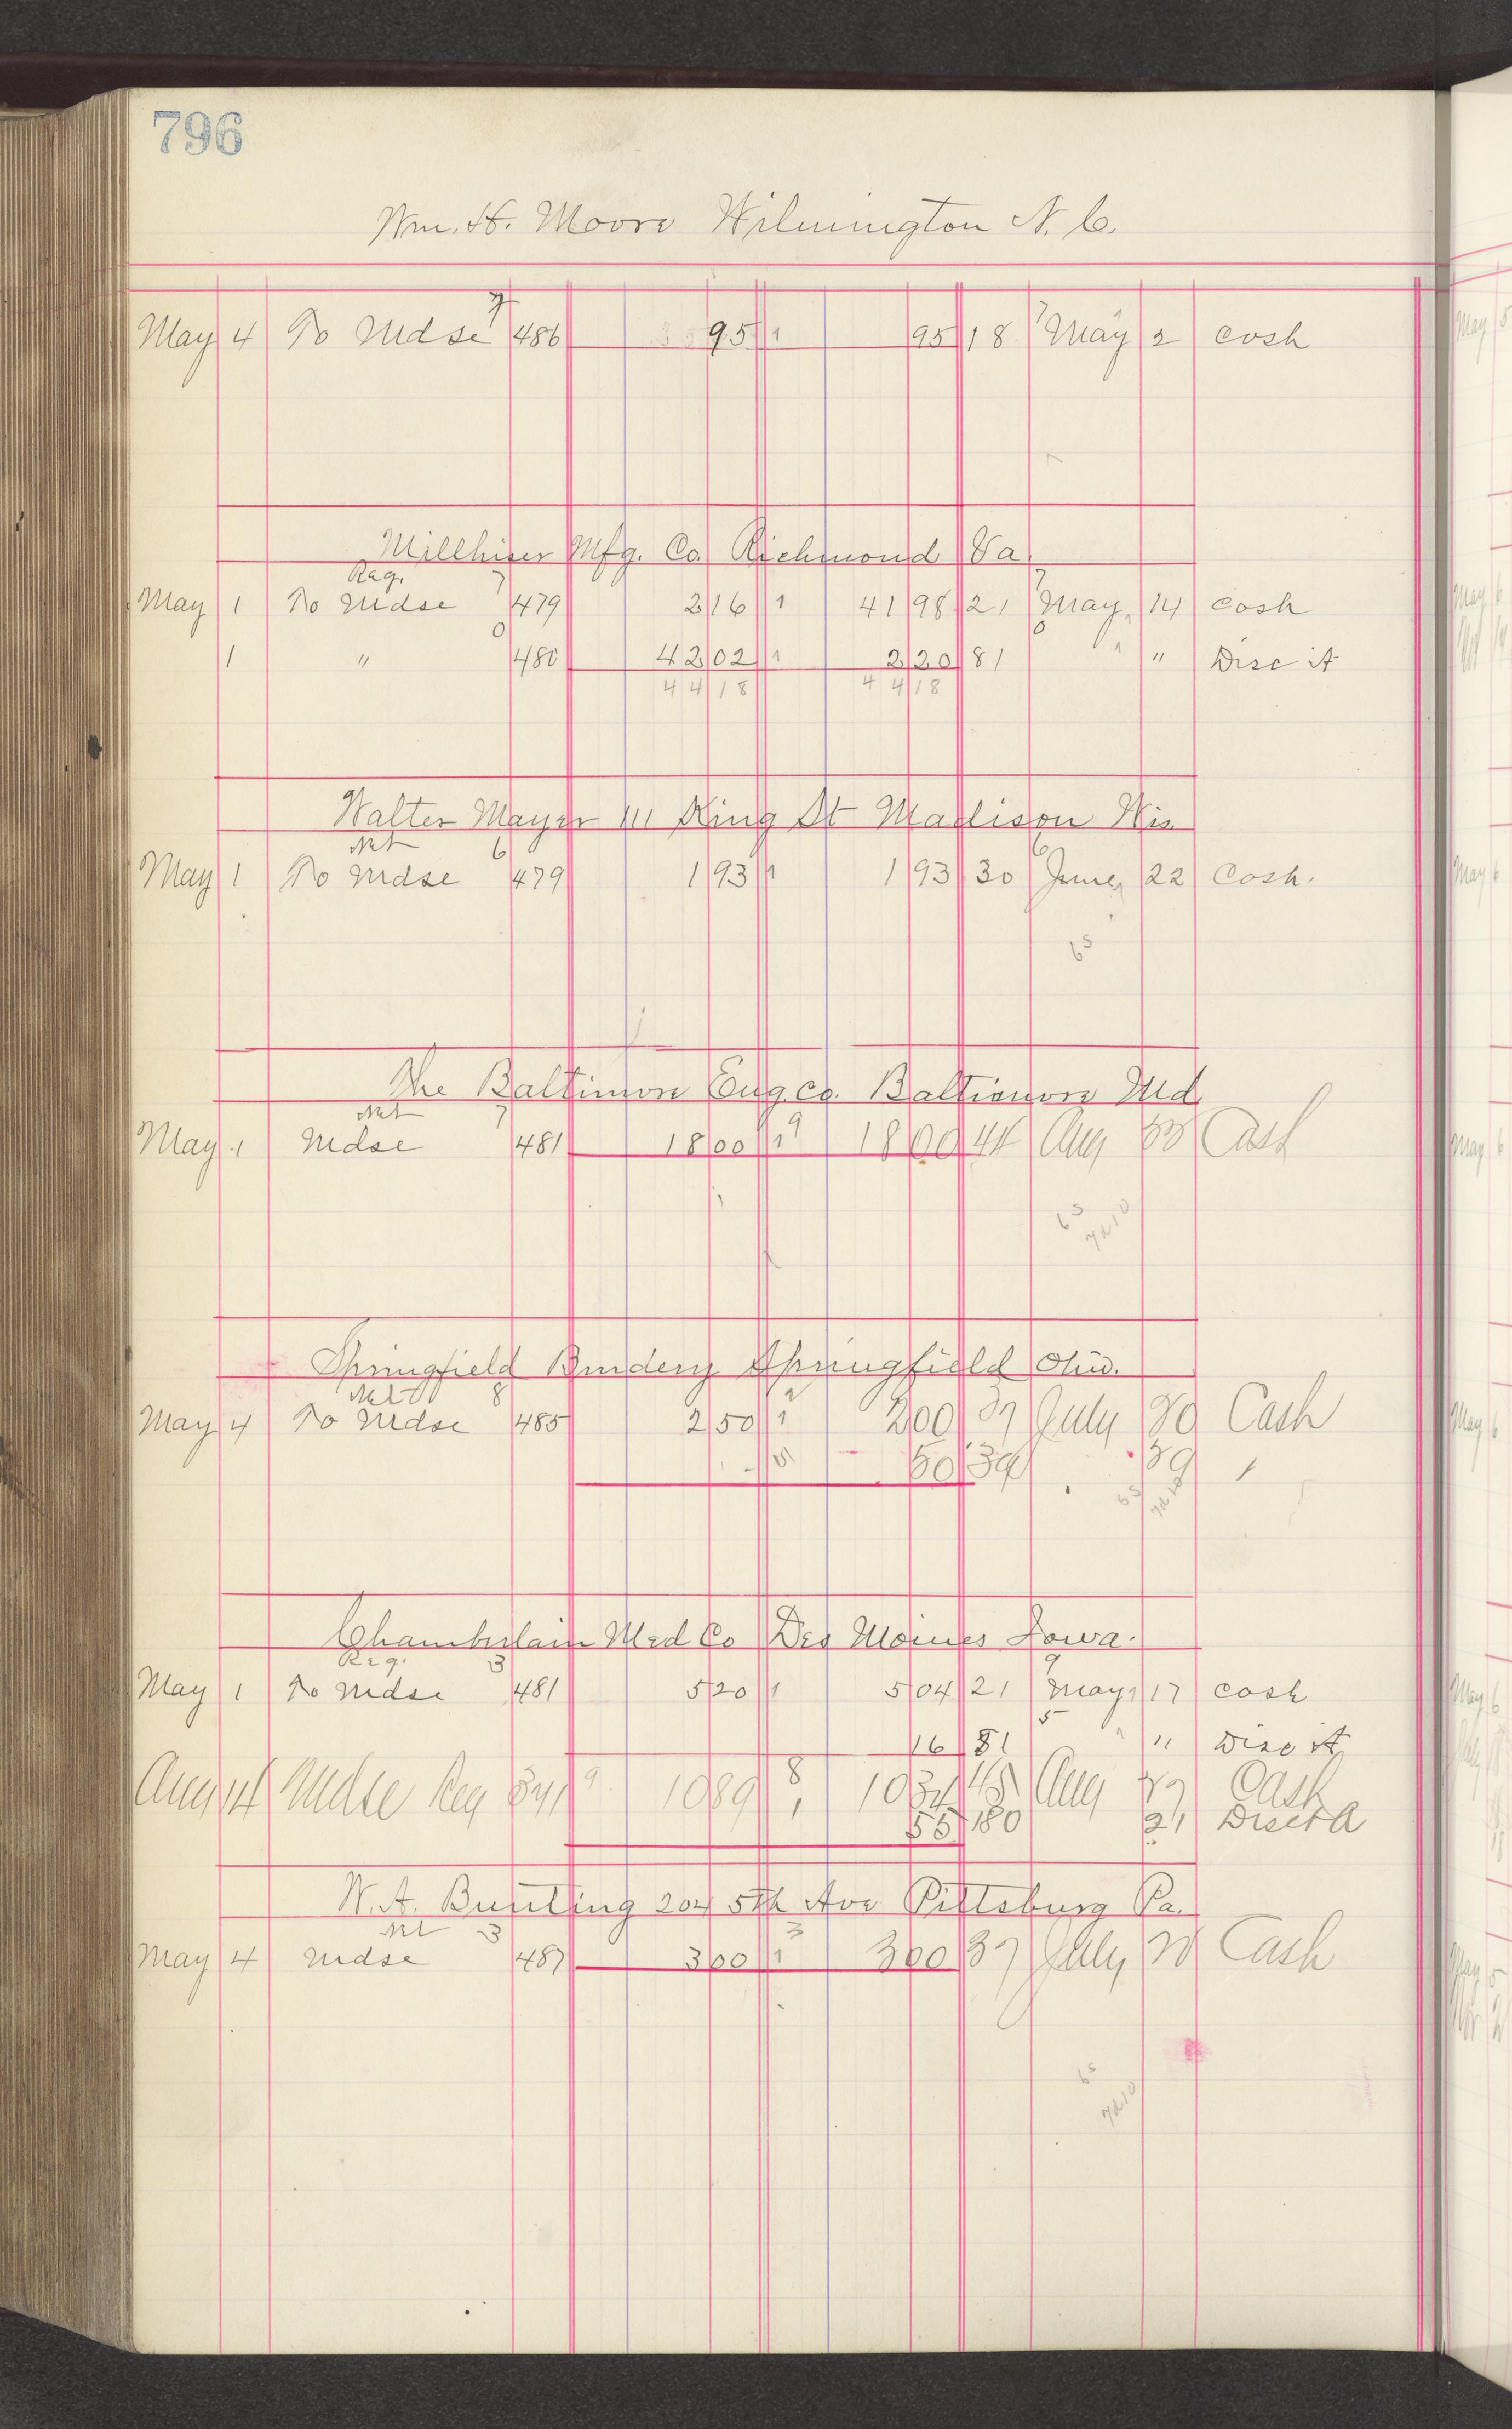 796
Wm. H. Moore Wilmington N. C.
7
May 4 To Mdse 486 95 1 95 18 May 2 cash
Millhiser Mfg. Co. Richmond Va.
Reg. 7 7
May 1 To Mdse 479 2 16 1 41 98 21 May 14 cash
0 0
1 " 480 42 02 1 2 20 81 " " Disc A
44 18 44 18
Walter Mayer 111 King St Madison Wis.
Net 6 6
May 1 To Mdse 479 1 93 1 1 93 30 June 22 Cash.
65
The Baltimore Eng. Co. Baltimore Md
Net 7 9
May 1 Mdse 481 18 00 1 18 00 44 Aug Cash
65
7210
Springfield Bindery Springfield Ohio.
Net 8 2
May 4 To Mdse 485 2 50 1 2 00 37 July 30 Cash
50 39
65
Chamberlain Med Co Des Moines Iowa.
Reg. 3 9
May 1 To Mdse 481 5 20 1 5 04 21 May 17 cash
5
16 81 " " Disc A
8
Aug 14 Mdse Reg 841 9 10 89 1 10 34 48 Aug Cash
55 180 21 Disct A
W. A. Bunting 204 5th Ave Pittsburg Pa.
Net 3 3
May 4 Mdse 487 3 00 1 3 00 37 July Cash
65
7210